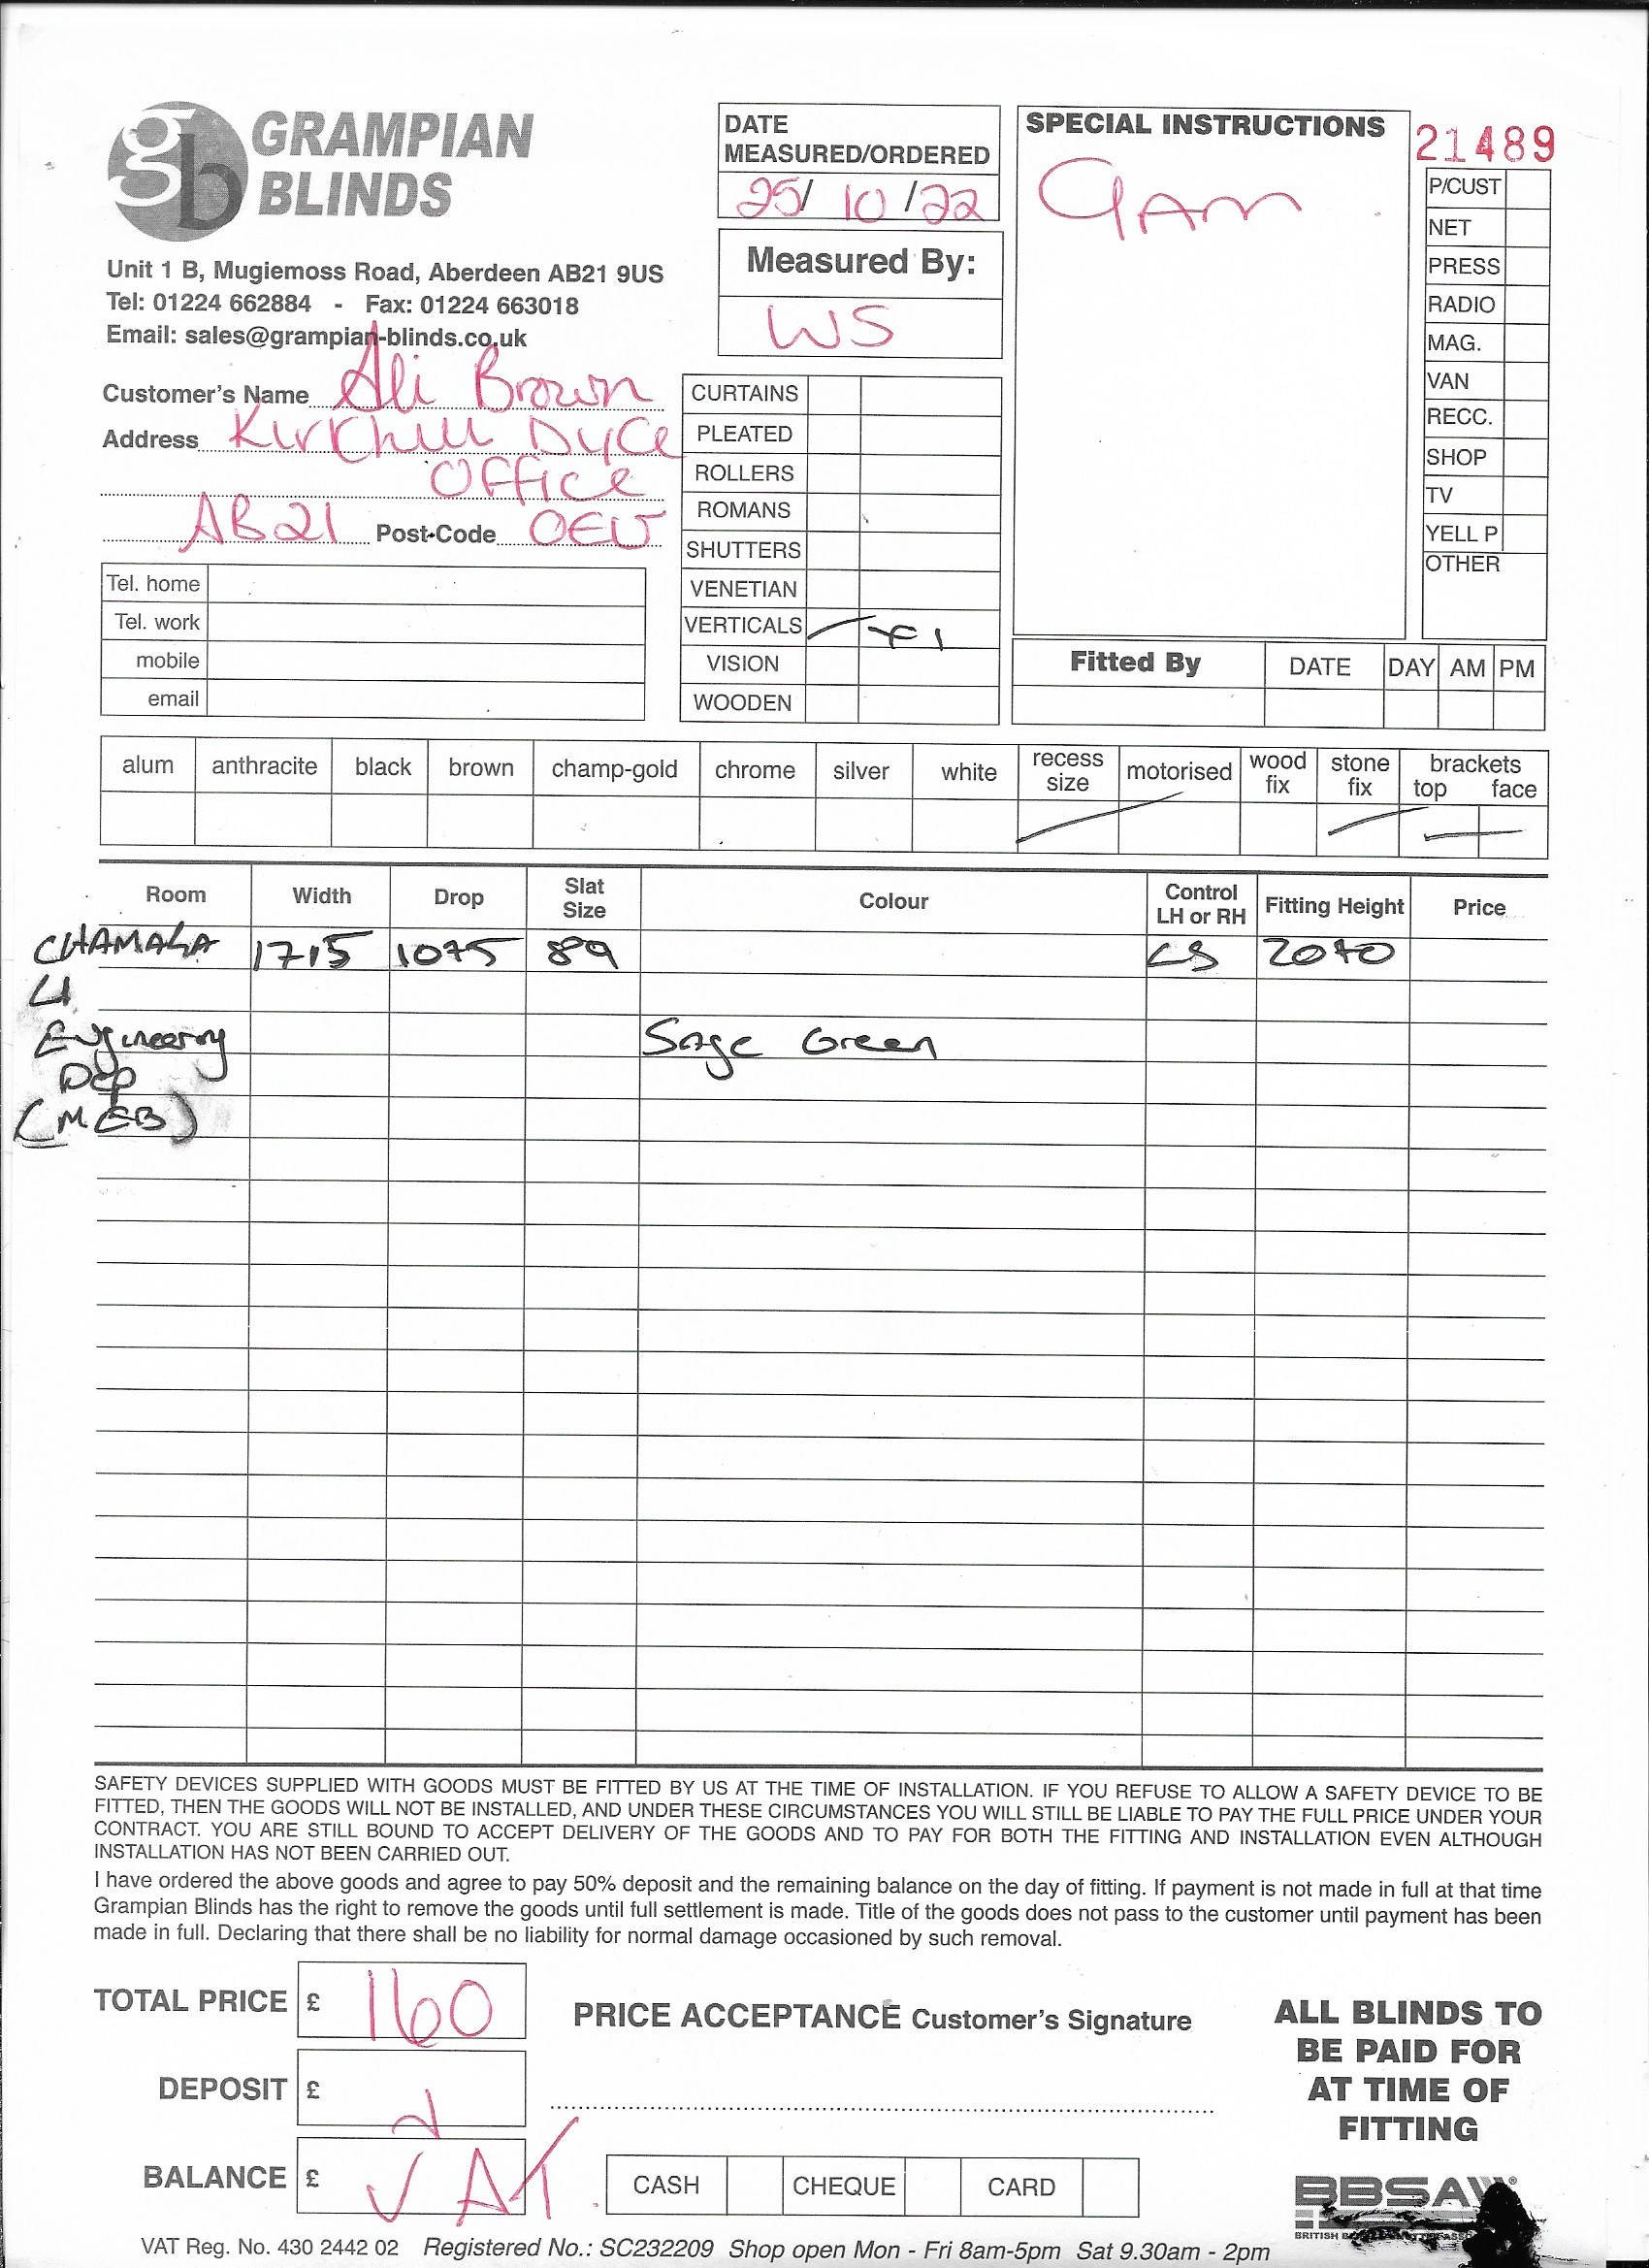 gb GRAMPIAN
BLINDS
Unit 1 B, Mugiemoss Road, Aberdeen AB21 9US
Tel: 01224 662884 - Fax: 01224 663018
Email: sales@grampian-blinds.co.uk
Customer's Name Ali Brown
Address Kirkhill Dyce
Office
AB21 Post-Code OEU
Tel. home
Tel. work
mobile
email
DATE
MEASURED/ORDERED
25/ 10 /22
Measured By:
WS
CURTAINS
PLEATED
ROLLERS
ROMANS
SHUTTERS
VENETIAN
VERTICALS
VISION
WOODEN
SPECIAL INSTRUCTIONS
9AM
21489
P/CUST
NET
PRESS
RADIO
MAG.
VAN
RECC.
SHOP
TV
YELL P
OTHER
Fitted By DATE DAY AM PM
alum anthracite black brown champ-gold chrome silver white recess size motorised wood fix stone fix brackets top face
Room Width Drop Slat Size Colour Control LH or RH Fitting Height Price
1715 1075 89 2070
Engineering Sage Green
Dep
(MEB)
SAFETY DEVICES SUPPLIED WITH GOODS MUST BE FITTED BY US AT THE TIME OF INSTALLATION. IF YOU REFUSE TO ALLOW A SAFETY DEVICE TO BE
FITTED, THEN THE GOODS WILL NOT BE INSTALLED, AND UNDER THESE CIRCUMSTANCES YOU WILL STILL BE LIABLE TO PAY THE FULL PRICE UNDER YOUR
CONTRACT. YOU ARE STILL BOUND TO ACCEPT DELIVERY OF THE GOODS AND TO PAY FOR BOTH THE FITTING AND INSTALLATION EVEN ALTHOUGH
INSTALLATION HAS NOT BEEN CARRIED OUT.
I have ordered the above goods and agree to pay 50% deposit and the remaining balance on the day of fitting. If payment is not made in full at that time
Grampian Blinds has the right to remove the goods until full settlement is made. Title of the goods does not pass to the customer until payment has been
made in full. Declaring that there shall be no liability for normal damage occasioned by such removal.
TOTAL PRICE £ 160
DEPOSIT £
BALANCE £ VAT
PRICE ACCEPTANCE Customer's Signature
CASH CHEQUE CARD
ALL BLINDS TO
BE PAID FOR
AT TIME OF
FITTING
BBSA
BRITISH
VAT Reg. No. 430 2442 02 Registered No.: SC232209 Shop open Mon - Fri 8am-5pm Sat 9.30am - 2pm